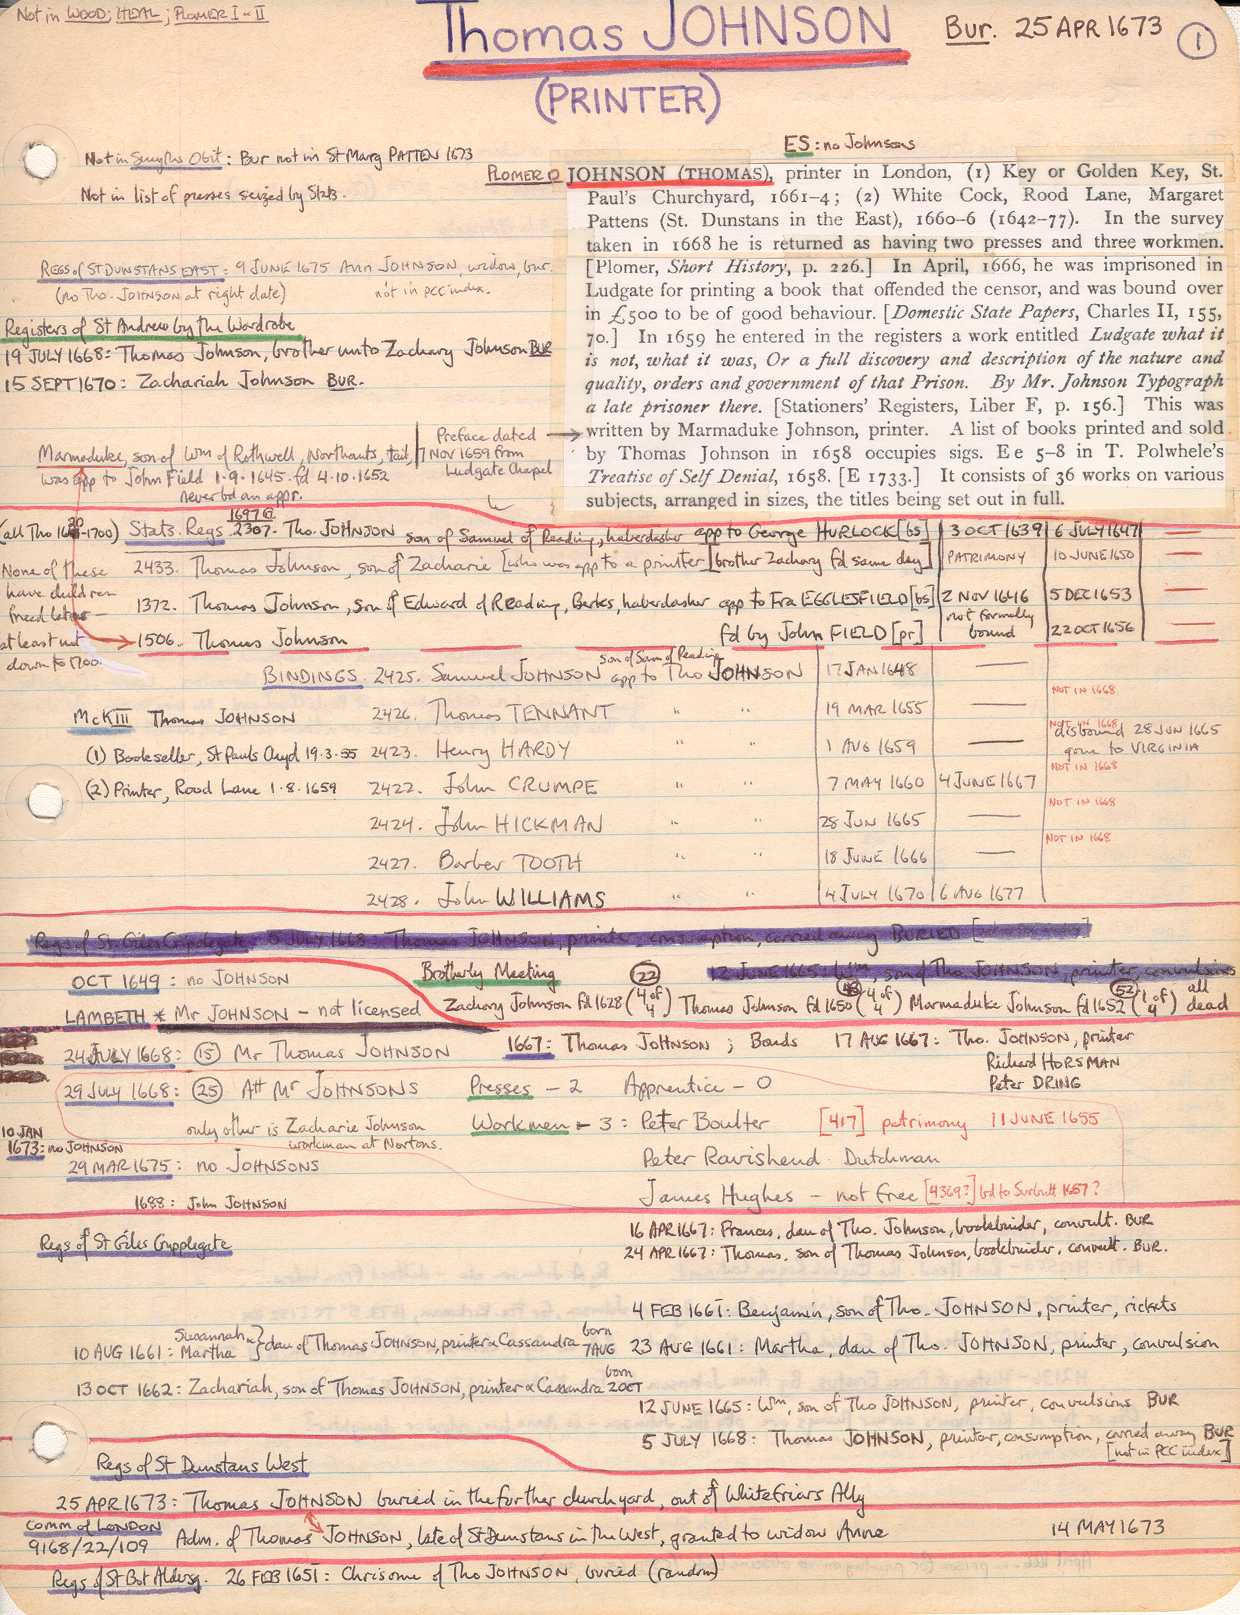 Not in WOOD; HEAL; PLOMER I-II
Thomas JOHNSON
Bur. 25 APR 1673
1
(PRINTER)
ES: no Johnsons
Not in Smyths Obit: Bur not in St Marg PATTEN 1673
Not in list of presses seized by Stats.
PLOMER
JOHNSON (THOMAS), printer in London, (1) Key or Golden Key, St.
Paul's Churchyard, 1661-4; (2) White Cock, Rood Lane, Margaret
Pattens (St. Dunstans in the East), 1660-6 (1642-77). In the survey
taken in 1668 he is returned as having two presses and three workmen.
[Plomer, Short History, p. 226.] In April, 1666, he was imprisoned in
Ludgate for printing a book that offended the censor, and was bound over
in £500 to be of good behaviour. [Domestic State Papers, Charles II, 155,
70.] In 1659 he entered in the registers a work entitled Ludgate what it
is not, what it was, Or a full discovery and description of the nature and
quality, orders and government of that Prison. By Mr. Johnson Typograph
a late prisoner there. [Stationers' Registers, Liber F, p. 156.] This was
written by Marmaduke Johnson, printer. A list of books printed and sold
by Thomas Johnson in 1658 occupies sigs. E e 5-8 in T. Polwhele's
Treatise of Self Denial, 1658. [E 1733.] It consists of 36 works on various
subjects, arranged in sizes, the titles being set out in full.
REGS of ST DUNSTANS EAST: 9 JUNE 1675 Ann JOHNSON, widow, bur.
(no Tho. JOHNSON at right date) not in PCC index.
Registers of St Andrew by the Wardrobe
19 JULY 1668: Thomas Johnson, brother unto Zachary Johnson BUR
15 SEPT 1670: Zachariah Johnson BUR.
Marmaduke, son of Wm of Rothwell, Northants, tail,
was app to John Field 1·9·1645 fd 4·10·1652
never bd an appr.
Preface dated
7 Nov 1659 from
Ludgate Chapel
(all Tho -1700) Stats. Regs 2307. Tho. JOHNSON son of Samuel of Reading, haberdasher app to George HURLOCK [bs] 3 OCT 1639 6 JULY 1647 —
None of these
have children
freed later—
at least not
down to 1700.
2433. Thomas Johnson, son of Zacharie [who was app to a printer] [brother Zachary fd same day] PATRIMONY 10 JUNE 1650 —
1372. Thomas Johnson, son of Edward of Reading, Berks, haberdasher app to Fra EGGLESFIELD [bs] 2 NOV 1646 5 DEC 1653 —
1506. Thomas Johnson fd by John FIELD [pr] not formally bound 22 OCT 1656 —
BINDINGS. 2425. Samuel JOHNSON son of Sam of Reading app to Tho JOHNSON 17 JAN 1648 —
2426. Thomas TENNANT " " 19 MAR 1655 — NOT IN 1668
McKIII Thomas JOHNSON
(1) Bookseller, St Pauls Chyd 19·3·55
(2) Printer, Rood Lane 1·8·1659
2423. Henry HARDY " " 1 AUG 1659 — NOT IN 1668 disbound 28 JUN 1665
gone to VIRGINIA
2422. John CRUMPE " " 7 MAY 1660 4 JUNE 1667 NOT IN 1668
2424. John HICKMAN " " 28 JUN 1665 — NOT IN 1668
2427. Barber TOOTH " " 18 JUNE 1666 — NOT IN 1668
2428. John WILLIAMS " " 4 JULY 1670 6 AUG 1677
Regs of St. Giles Cripplegate 5 JULY 1668: Thomas JOHNSON, printer, consumption, carried away BURIED
12 JUNE 1665: Wm, son of Tho JOHNSON, printer, convulsions
OCT 1649: no JOHNSON
LAMBETH * Mr JOHNSON - not licensed
Brotherly Meeting
Zachary Johnson fd 1628 (22) (4 of 4) Thomas Johnson fd 1650 (4 of 4) Marmaduke Johnson fd 1652 (52) (1 of 4) all dead
24 JULY 1668: (15) Mr Thomas JOHNSON
1667: Thomas JOHNSON; Bonds 17 AUG 1667: Tho. JOHNSON, printer
Richard HORSMAN
Peter DRING
29 JULY 1668: (25) Att Mr JOHNSONS Presses - 2 Apprentice - 0
only other is Zacharie Johnson
workman at Nortons.
Workmen - 3: Peter Boulter [417] patrimony 11 JUNE 1655
Peter Ravishend Dutchman
James Hughes - not free [4369?] bd to Surbutt 1657?
10 JAN
1673: no JOHNSON
29 MAR 1675: no JOHNSONS
1688: John JOHNSON
Regs of St Giles Cripplegate
16 APR 1667: Frances, dau of Tho. Johnson, bookbinder, convult. BUR
24 APR 1667: Thomas, son of Thomas Johnson, bookbinder, convult. BUR.
4 FEB 1661: Benjamin, son of Tho. JOHNSON, printer, rickets
10 AUG 1661: Susannah & Martha } dau of Thomas JOHNSON, printer & Cassandra born 7 AUG
23 AUG 1661: Martha, dau of Tho. JOHNSON, printer, convulsion
13 OCT 1662: Zachariah, son of Thomas JOHNSON, printer & Cassandra born 2 OCT
12 JUNE 1665: Wm, son of Tho JOHNSON, printer, convulsions BUR
5 JULY 1668: Thomas JOHNSON, printer, consumption, carried away BUR
[not in PCC index]
Regs of St Dunstans West
25 APR 1673: Thomas JOHNSON buried in the further churchyard, out of Whitefriars Ally
Comm of LONDON
9168/22/109
Adm. of Thomas JOHNSON, late of St Dunstans in the West, granted to widow Anne 14 MAY 1673
Regs of St Bot Aldersg. 26 FEB 1651: Chrisome of Tho JOHNSON, buried (random)